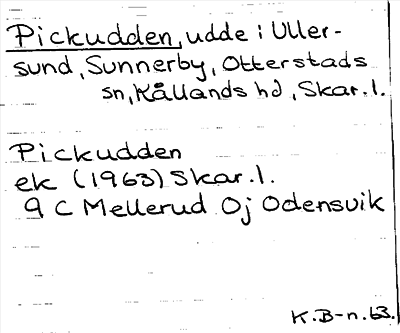 Pickudden, udde i Uller-
sund, Sunnerby, Otterstads
sn, Kållands hd, Skar.l.
Pickudden
ek (1963) Skar.l.
9 C Mellerud Oj Odensvik
K.B-n.63.